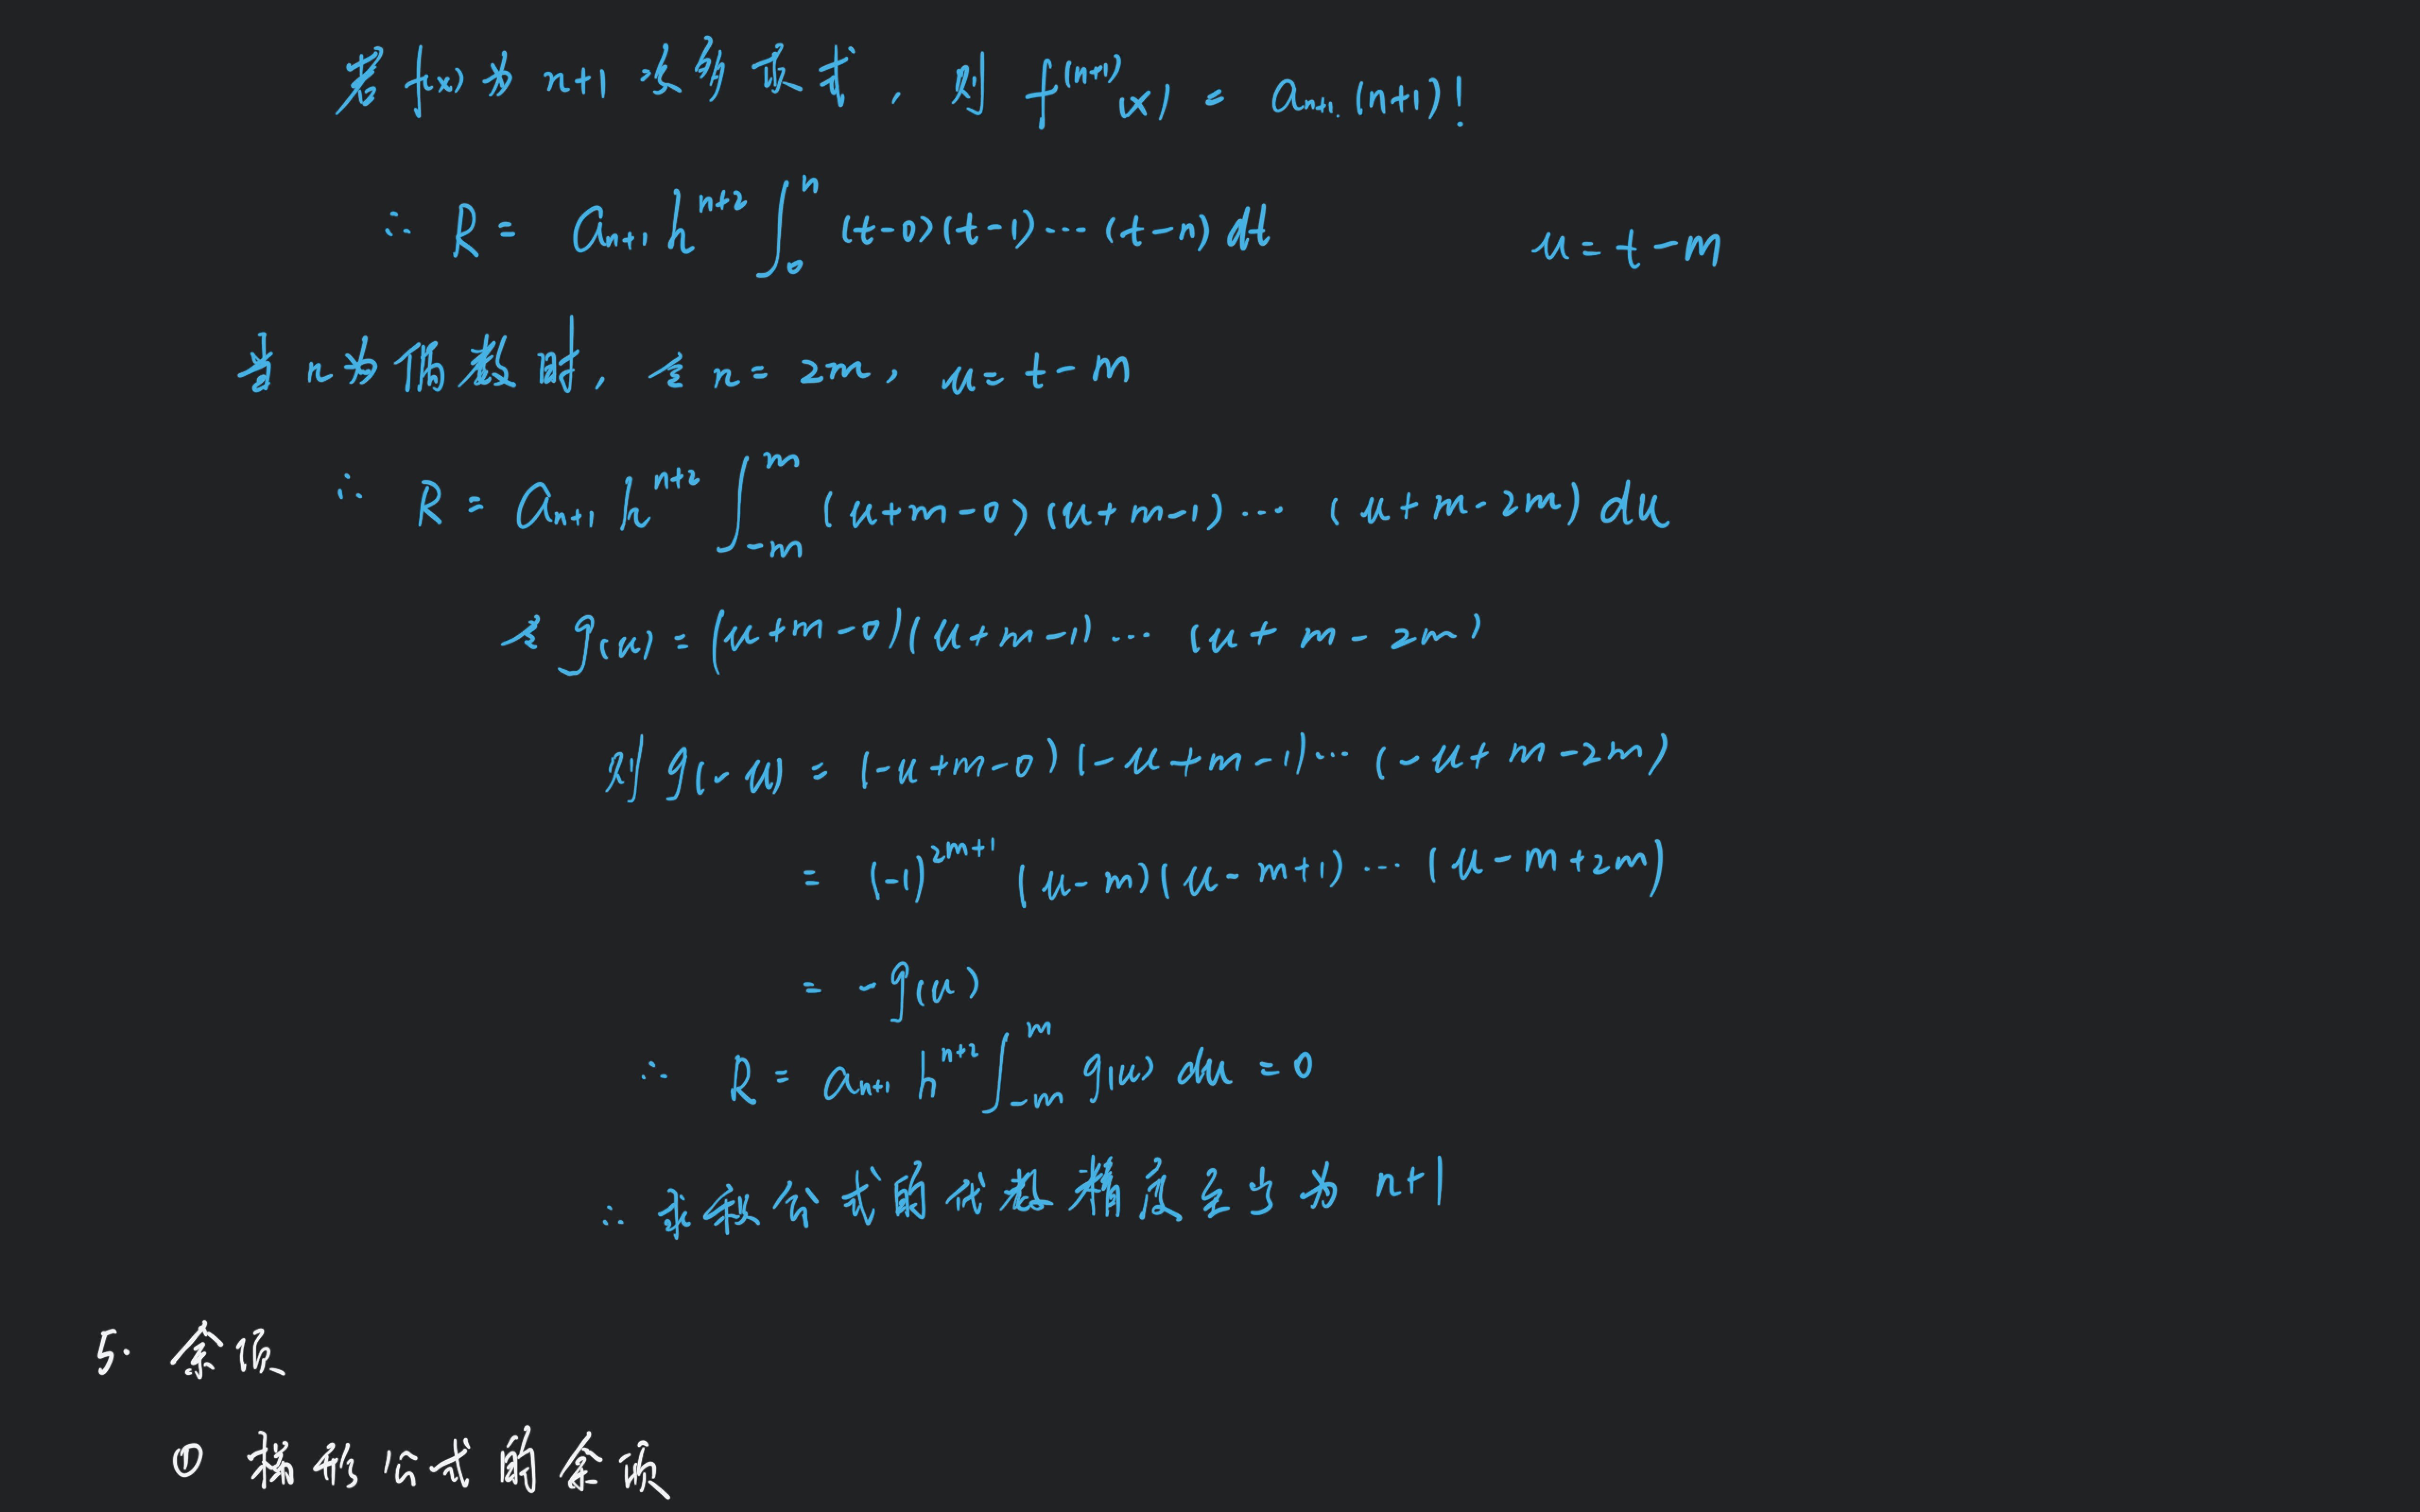 若 f(x) 为 n+1 次多项式，则 f^{(n+1)}(x) = a_{n+1}·(n+1)!
∴ R = a_{n+1} h^{n+2} ∫_0^n (t-0)(t-1)⋯(t-n) dt u = t-m
当 n 为偶数时，令 n = 2m，u = t-m
∴ R = a_{n+1} h^{n+2} ∫_{-m}^{m} (u+m-0)(u+m-1)⋯(u+m-2m) du
令 g(u) = (u+m-0)(u+m-1)⋯(u+m-2m)
则 g(-u) = (-u+m-0)(-u+m-1)⋯(-u+m-2m)
= (-1)^{2m+1} (u-m)(u-m+1)⋯(u-m+2m)
= -g(u)
∴ R = a_{n+1} h^{n+2} ∫_{-m}^{m} g(u) du = 0
∴ 求积公式的代数精度至少为 n+1
5. 余项
① 梯形公式的余项